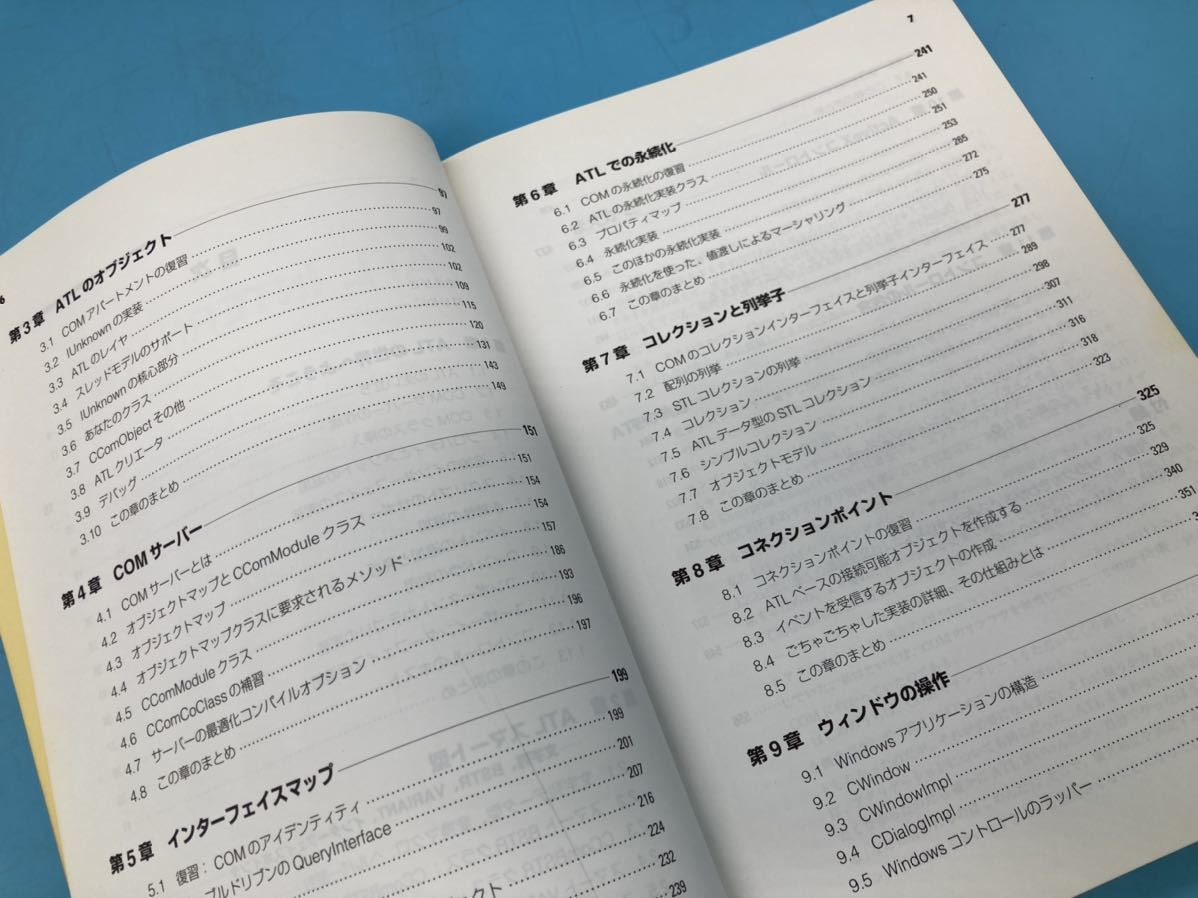 6
第3章 ATLのオブジェクト 97
3.1 COMアパートメントの復習 97
3.2 IUnknownの実装 99
3.3 ATLのレイヤ 102
3.4 スレッドモデルのサポート 102
3.5 IUnknownの核心部分 109
3.6 あなたのクラス 115
3.7 CComObjectその他 120
3.8 ATLクリエータ 131
3.9 デバッグ 143
3.10 この章のまとめ 149
第4章 COMサーバー 151
4.1 COMサーバーとは 151
4.2 オブジェクトマップとCComModuleクラス 154
4.3 オブジェクトマップ 154
4.4 オブジェクトマップクラスに要求されるメソッド 157
4.5 CComModuleクラス 186
4.6 CComCoClassの補習 193
4.7 サーバーの最適化コンパイルオプション 196
4.8 この章のまとめ 197
第5章 インターフェイスマップ 199
5.1 復習：COMのアイデンティティ 199
ブルドリブンのQueryInterface 201
207
216
224
クト 232
239
7
第6章 ATLでの永続化 241
6.1 COMの永続化の復習 241
6.2 ATLの永続化実装クラス 250
6.3 プロパティマップ 251
6.4 永続化実装 253
6.5 このほかの永続化実装 265
6.6 永続化を使った、値渡しによるマーシャリング 272
6.7 この章のまとめ 275
第7章 コレクションと列挙子 277
7.1 COMのコレクションインターフェイスと列挙子インターフェイス 277
7.2 配列の列挙 289
7.3 STLコレクションの列挙 298
7.4 コレクション 307
7.5 ATLデータ型のSTLコレクション 311
7.6 シンプルコレクション 316
7.7 オブジェクトモデル 318
7.8 この章のまとめ 323
第8章 コネクションポイント 325
8.1 コネクションポイントの復習 325
8.2 ATLベースの接続可能オブジェクトを作成する 329
8.3 イベントを受信するオブジェクトの作成 340
8.4 ごちゃごちゃした実装の詳細、その仕組みとは 351
8.5 この章のまとめ
第9章 ウィンドウの操作
9.1 Windowsアプリケーションの構造
9.2 CWindow
9.3 CWindowImpl
9.4 CDialogImpl
9.5 Windowsコントロールのラッパー